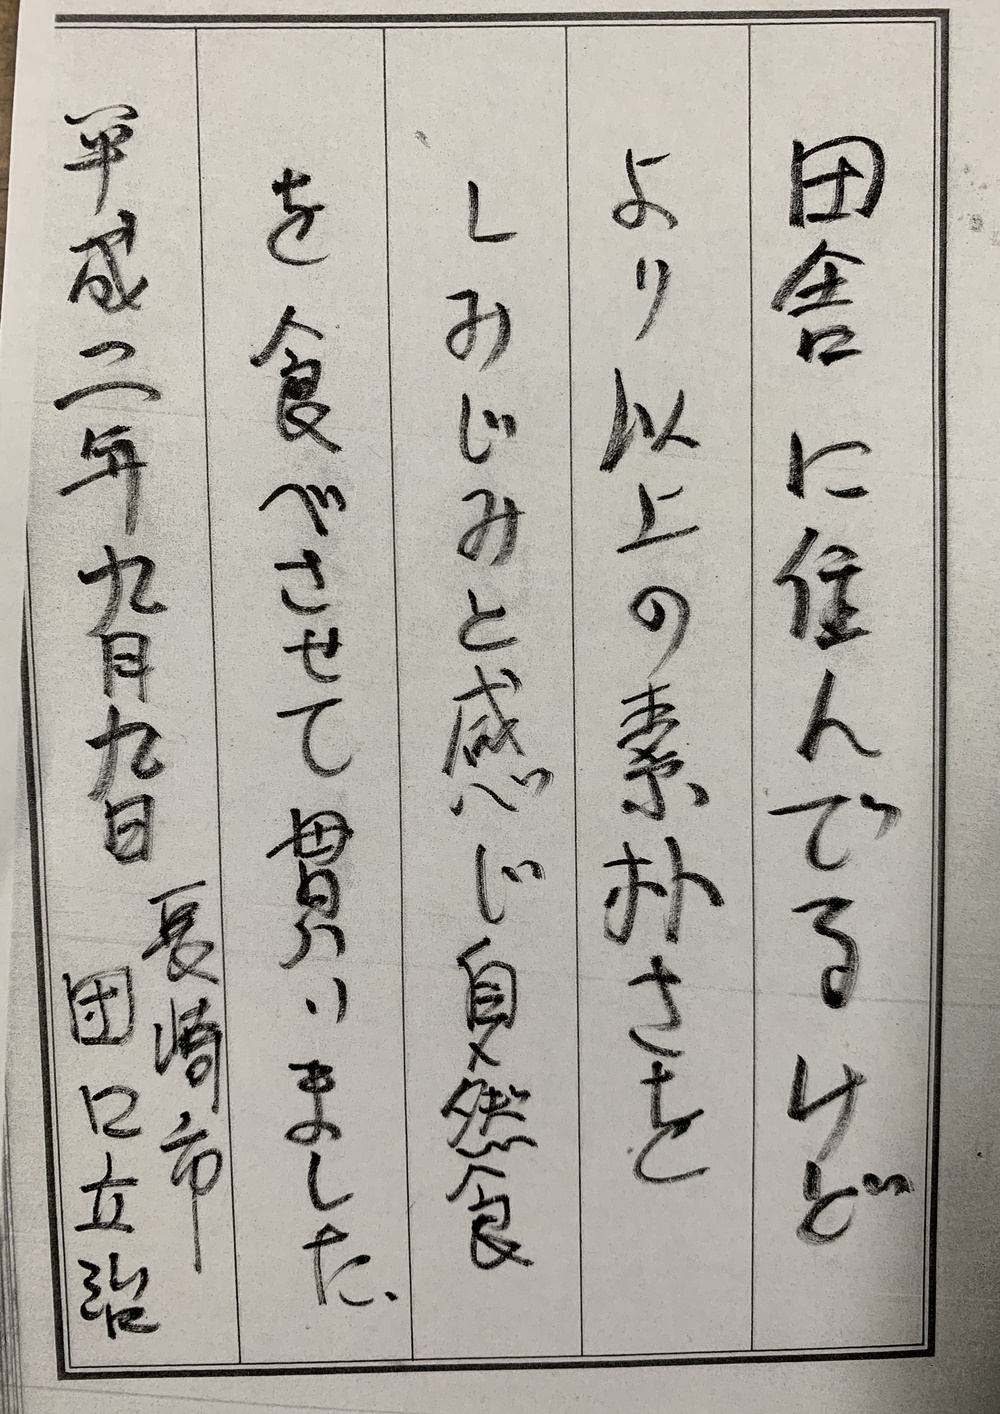 田舎に住んでるけど
より以上の素朴さを
しみじみと感じ自然食
を食べさせて貰いました
平成二年九月九日
長崎市
田口立治